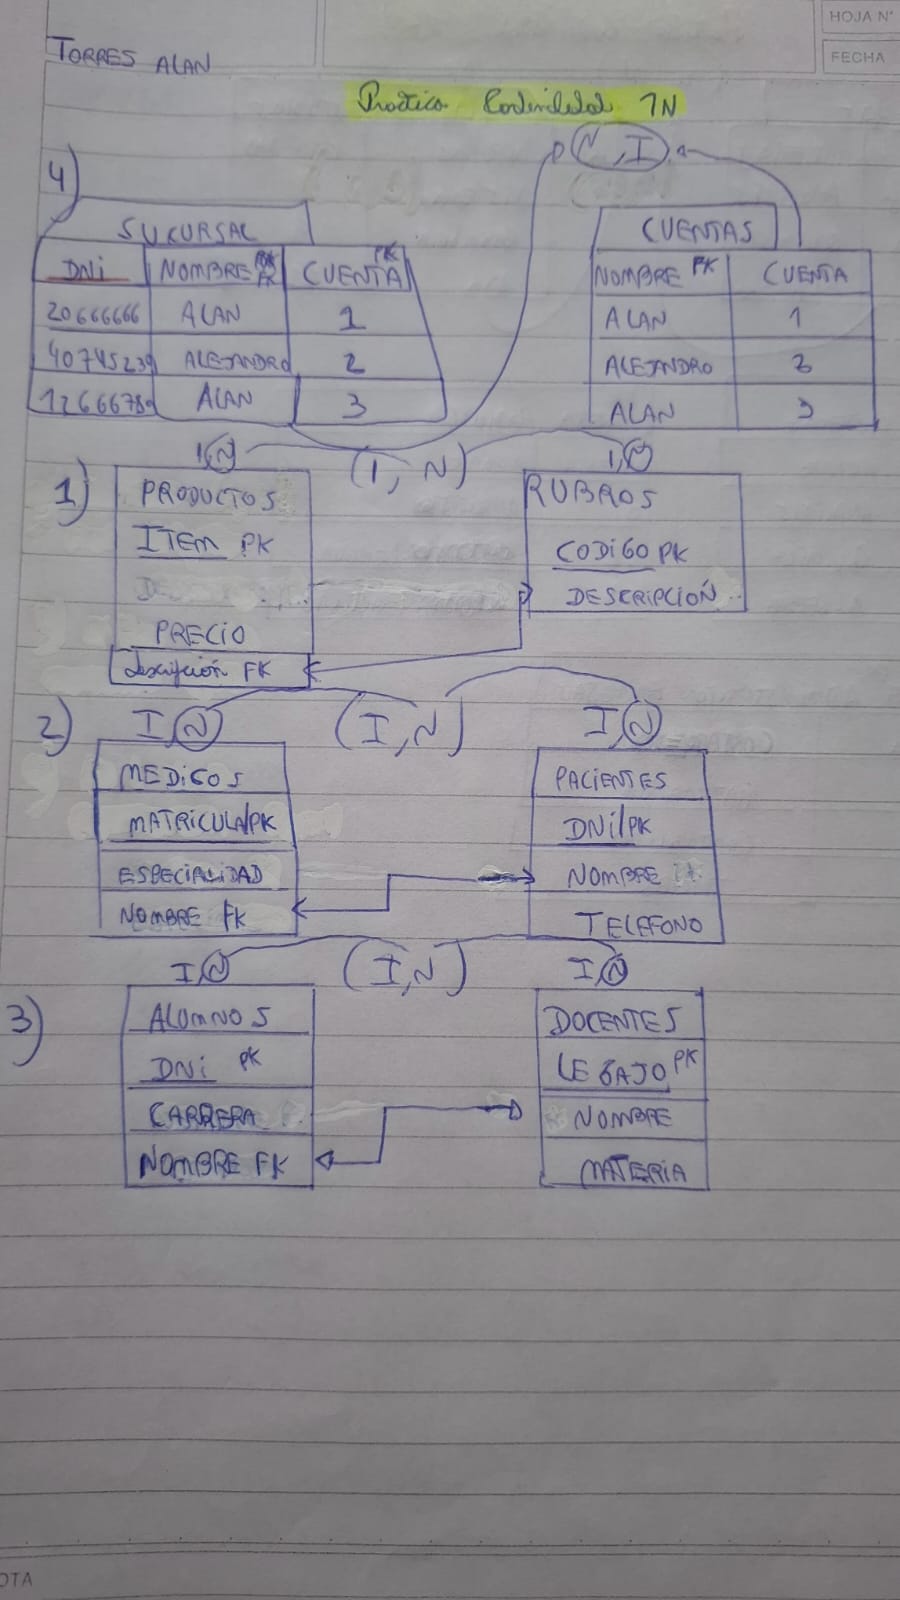 HOJA N°
FECHA
TORRES ALAN
Practica Cardinalidad 1N
N, I
4)
SUCURSAL
CUENTAS
DNI NOMBRE FK CUENTA PK
NOMBRE PK CUENTA
20666666 ALAN 1
ALAN 1
40745239 ALEJANDRO 2
ALEJANDRO 2
12666789 ALAN 3
ALAN 3
1,N (1, N) 1,N
1)
PRODUCTOS
ITEM PK
PRECIO
descripción FK
RUBROS
CODIGO PK
DESCRIPCIÓN
I,N (I,N) I,N
2)
MEDICOS
MATRICULA/PK
ESPECIALIDAD
NOMBRE FK
PACIENTES
DNI/PK
NOMBRE
TELEFONO
I,N (I,N) I,N
3)
ALUMNOS
DNI PK
CARRERA
NOMBRE FK
DOCENTES
LEGAJO PK
NOMBRE
MATERIA
OTA